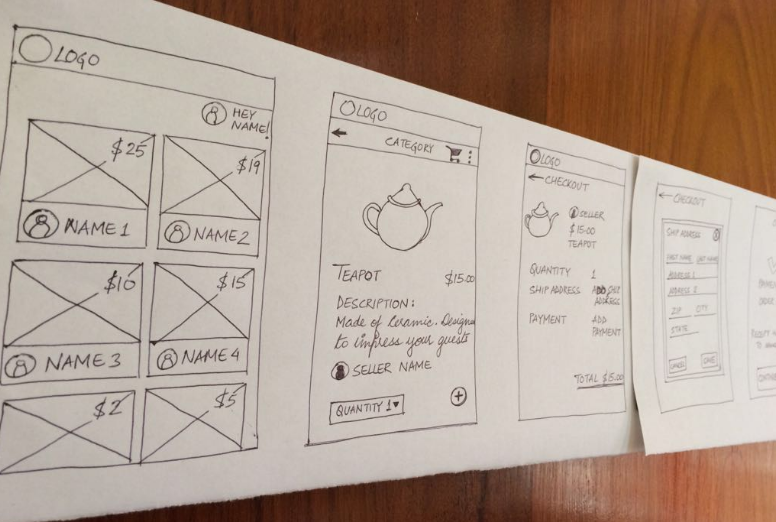 LOGO
HEY
NAME!
$25
$19
NAME 1
NAME 2
$10
$15
NAME 3
NAME 4
$2
$5
LOGO
CATEGORY
TEAPOT
$15.00
DESCRIPTION:
Made of Ceramic. Designed
to impress your guests
SELLER NAME
QUANTITY 1
LOGO
CHECKOUT
SELLER
$15.00
TEAPOT
QUANTITY 1
SHIP ADDRESS ADD SHIP
ADDRESS
PAYMENT ADD
PAYMENT
TOTAL $15.00
CHECKOUT
SHIP ADDRESS
FIRST NAME LAST NAME
ADDRESS 1
ADDRESS 2
ZIP CITY
STATE
CANCEL SAVE
ORDER